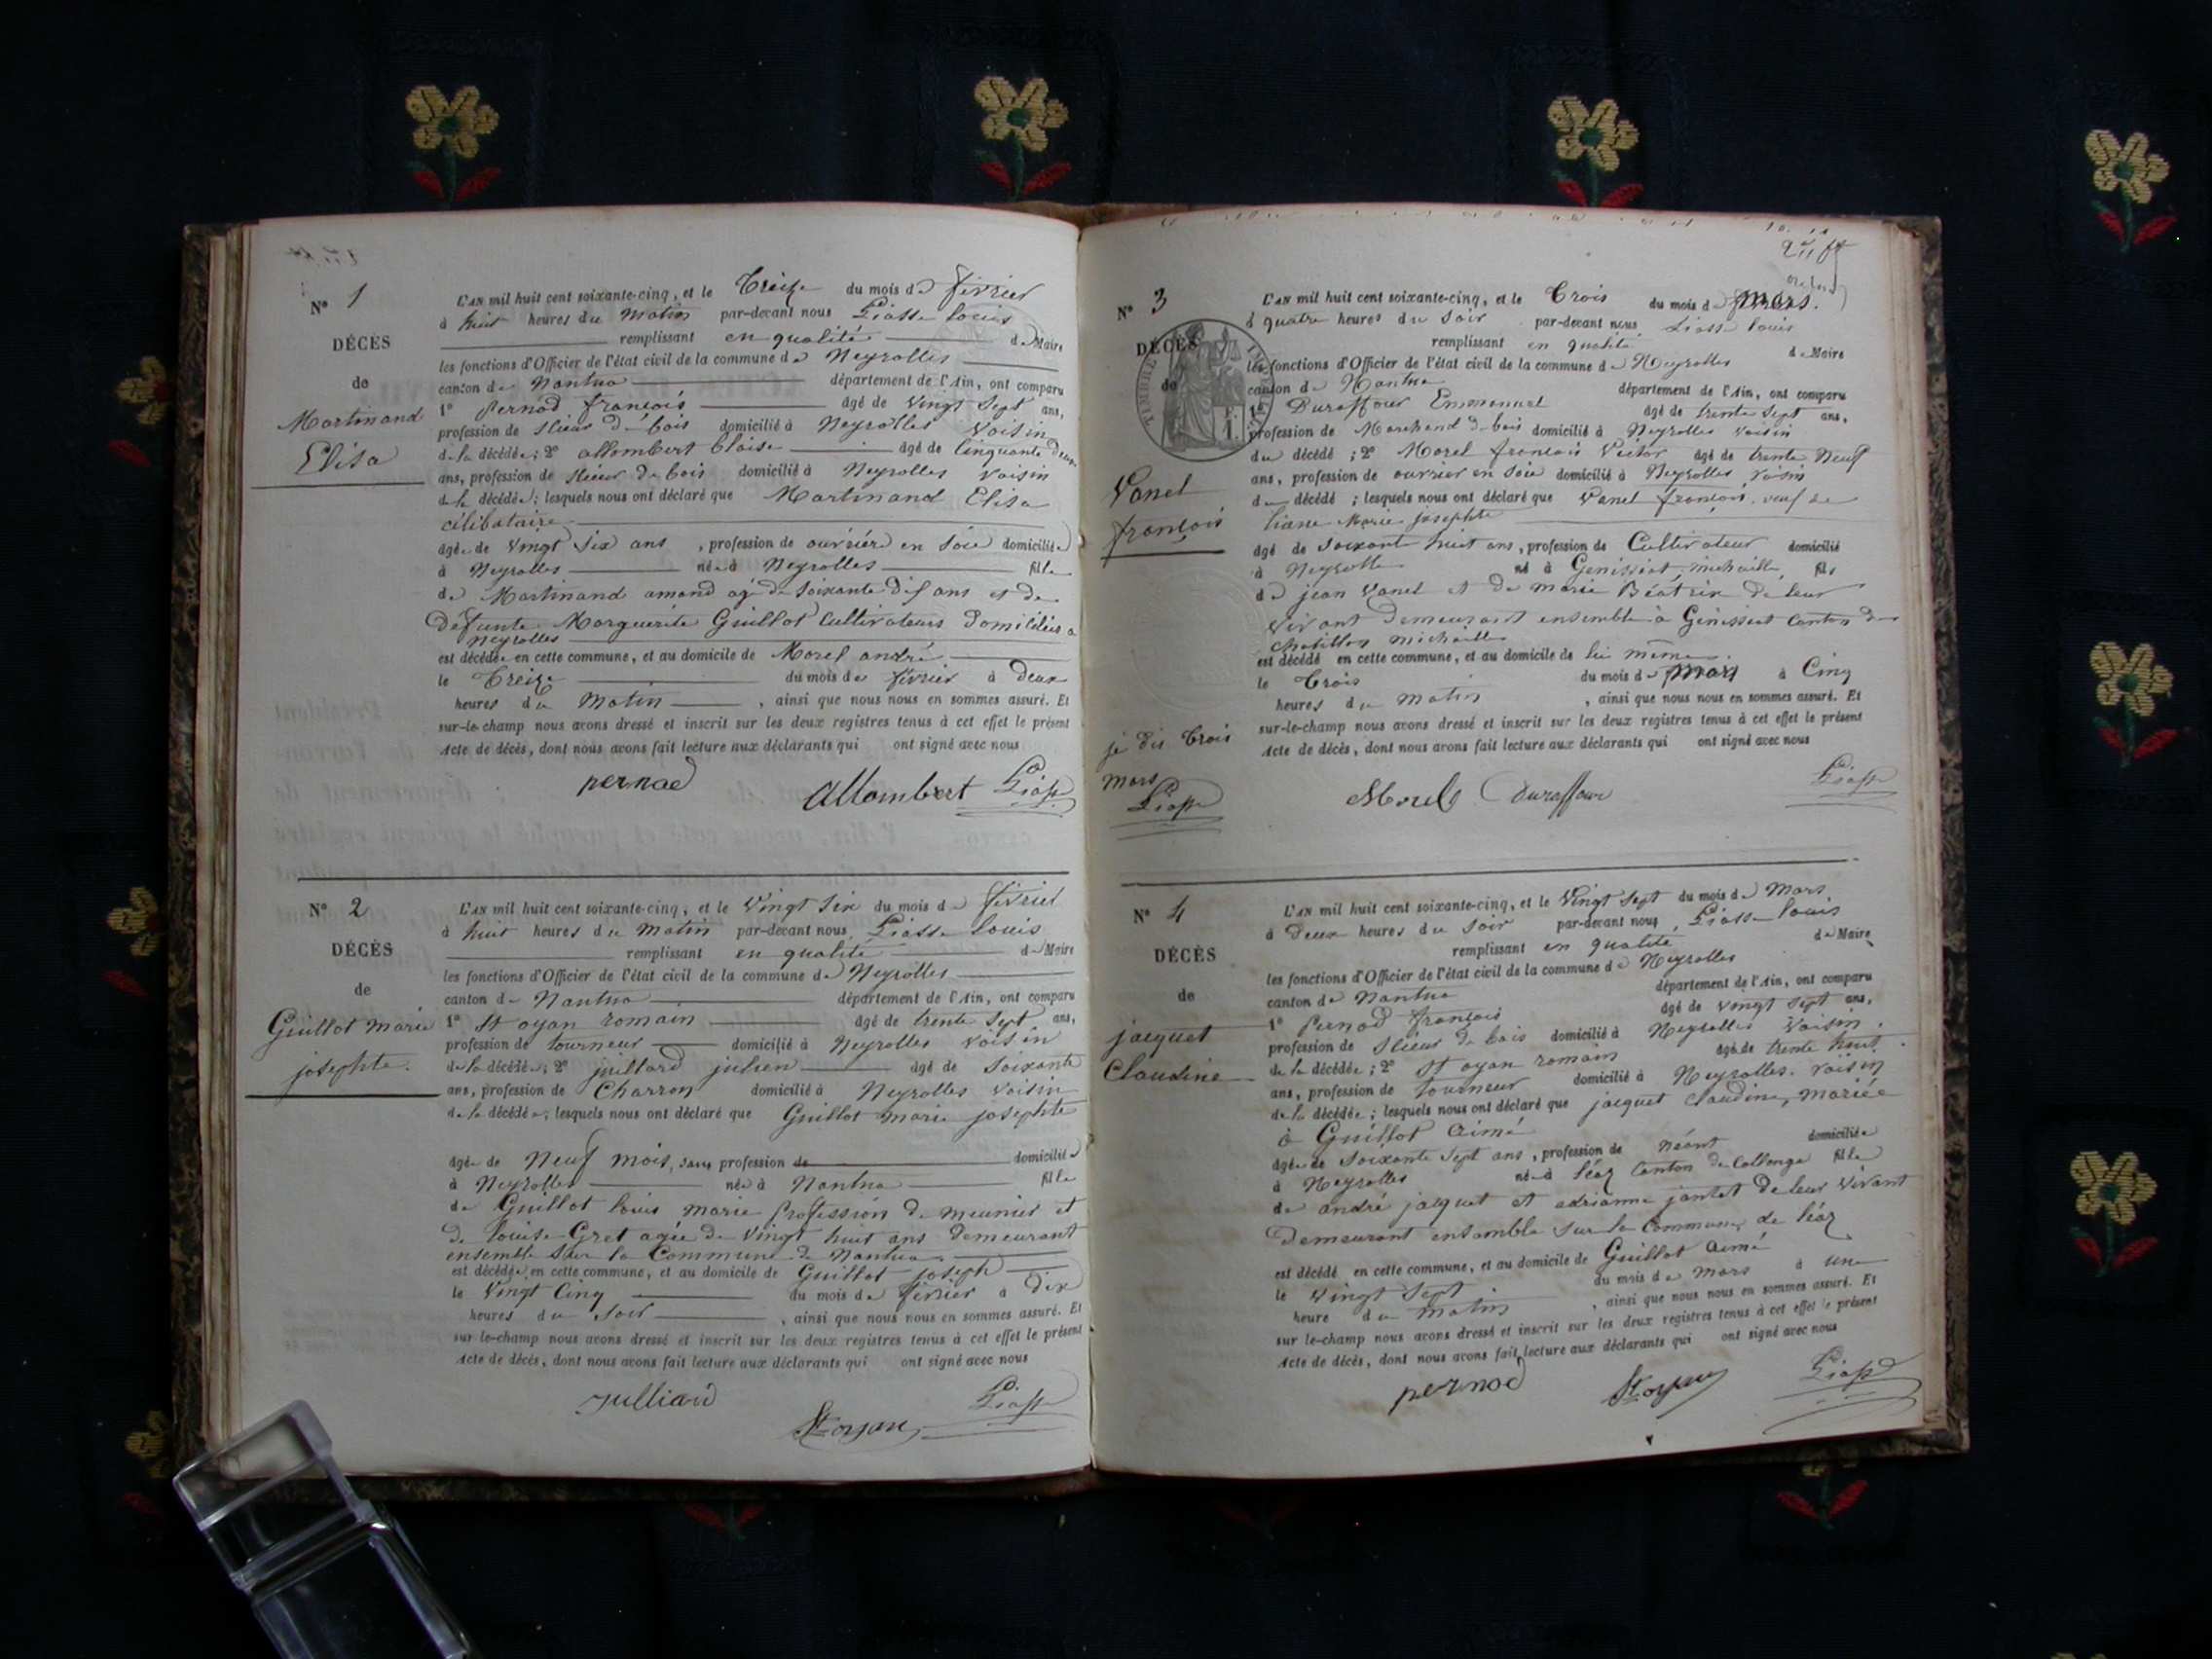 N° 1
DÉCÈS
de
Martinand
Elisa
L'AN mil huit cent soixante-cinq, et le Treize du mois de février
à huit heures du matin par-devant nous Liasse louis
remplissant en qualité de Maire
les fonctions d'Officier de l'état civil de la commune de Neyrolles
canton de Nantua département de l'Ain, ont comparu
1° Pernod françois âgé de vingt sept ans,
profession de scieur de bois domicilié à Neyrolles voisin
de la décédée; 2° allombert blaise âgé de cinquante deux
ans, profession de scieur de bois domicilié à Neyrolles voisin
de la décédée; lesquels nous ont déclaré que Martinand Elisa
célibataire
âgée de vingt six ans, profession de ouvrière en soie domiciliée
à Neyrolles née à Neyrolles fille
de Martinand amand agé de soixante dix ans et de
défunte Marguerite Guillot Cultivateurs domiciliés a
Neyrolles
est décédée en cette commune, et au domicile de Morel andré
le Treize du mois de février à deux
heures du matin, ainsi que nous nous en sommes assuré. Et
sur-le-champ nous avons dressé et inscrit sur les deux registres tenus à cet effet le présent
Acte de décès, dont nous avons fait lecture aux déclarants qui ont signé avec nous
pernod Allombert Liasse
N° 2
DÉCÈS
de
Guillot marie
josephte.
L'AN mil huit cent soixante-cinq, et le vingt six du mois de février
à huit heures du matin par-devant nous Liasse louis
remplissant en qualité de Maire
les fonctions d'Officier de l'état civil de la commune de Neyrolles
canton de Nantua département de l'Ain, ont comparu
1° St oyan romain âgé de trente sept ans,
profession de tourneur domicilié à Neyrolles voisin
de la décédée; 2° juillard julien âgé de soixante
ans, profession de Charron domicilié à Neyrolles voisin
de la décédée; lesquels nous ont déclaré que Guillot marie josephte
âgée de Neuf mois, sans profession de domiciliée
à Neyrolles née à Nantua fille
de Guillot louis marie profession de meunier et
de louise Gret agée de vingt huit ans demeurant
ensemble sur la Commune de Nantua.
est décédée en cette commune, et au domicile de Guillot joseph
le vingt cinq du mois de février à dix
heures du soir, ainsi que nous nous en sommes assuré. Et
sur le-champ nous avons dressé et inscrit sur les deux registres tenus à cet effet le présent
Acte de décès, dont nous avons fait lecture aux déclarants qui ont signé avec nous
Julliard St oyan Liasse
N° 3
DÉCÈS
de
TIMBRE
Vanel
françois
L'AN mil huit cent soixante-cinq, et le Trois du mois de mars.
à quatre heures du soir par-devant nous Liasse louis
remplissant en qualité de Maire
les fonctions d'Officier de l'état civil de la commune de Neyrolles
canton de Nantua département de l'Ain, ont comparu
1° Duraffour Emmanuel âgé de trente sept ans,
profession de Marchand de bois domicilié à Neyrolles voisin
du décédé; 2° Morel françois Victor âgé de trente neuf
ans, profession de ouvrier en soie domicilié à Neyrolles voisin
du décédé; lesquels nous ont déclaré que Vanel françois, veuf de
Marie josephte
âgé de soixante huit ans, profession de Cultivateur domicilié
à Neyrolle né à Genissiat, michaille, fils
de jean Vanel et de marie Béatrix de leur
vivant demeurant ensemble à Génissiat Canton de
Chatillon michaille
est décédé en cette commune, et au domicile de lui même.
le Trois du mois de mars à Cinq
heures du matin, ainsi que nous nous en sommes assuré. Et
sur-le-champ nous avons dressé et inscrit sur les deux registres tenus à cet effet le présent
Acte de décès, dont nous avons fait lecture aux déclarants qui ont signé avec nous
je dis Trois
mars
Liasse
Morel Duraffour Liasse
N° 4
DÉCÈS
de
jacquet
Claudine
L'AN mil huit cent soixante-cinq, et le vingt sept du mois de Mars
à deux heures du soir par-devant nous, Liasse louis
remplissant en qualité de Maire
les fonctions d'Officier de l'état civil de la commune de Neyrolles
canton de Nantua département de l'Ain, ont comparu
1° Pernod françois âgé de vingt sept ans,
profession de scieur de bois domicilié à Neyrolles voisin.
de la décédée; 2° St oyan romain âgé de trente huit
ans, profession de tourneur domicilié à Neyrolles. voisin
de la décédée; lesquels nous ont déclaré que jacquet Claudine, mariée
à Guillot aimé
âgée de soixante sept ans, profession de néant domiciliée
à Neyrolles née à léaz Canton de Collonge fille
de andré jacquet et adrianne jantet de leur vivant
demeurant ensemble sur la Commune de léaz
est décédé en cette commune, et au domicile de Guillot aimé
le vingt sept du mois de mars à une
heure du matin, ainsi que nous nous en sommes assuré. Et
sur le-champ nous avons dressé et inscrit sur les deux registres tenus à cet effet le présent
Acte de décès, dont nous avons fait lecture aux déclarants qui ont signé avec nous
pernod St oyan Liasse